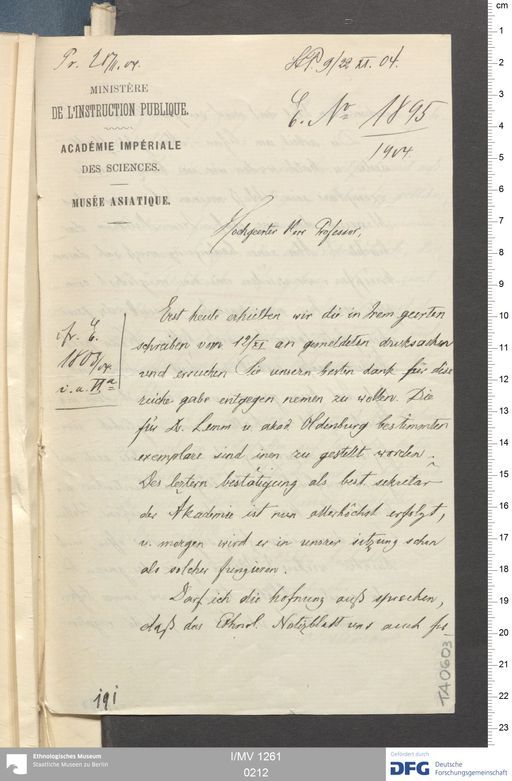 Pr. 28/11.04.
SP 9/22 XI. 04.
MINISTÈRE
DE L'INSTRUCTION PUBLIQUE.
ACADÉMIE IMPÉRIALE
DES SCIENCES.
MUSÉE ASIATIQUE.
E. No 1895
1904.
Hochgeerter Herr Professor,
Erst heute erhielten wir die in Irem geerten
schreiben vom 19/XI an gemeldeten drucksachen
und ersuchen Sie unsern besten dank für dise
reiche gabe entgegen nemen zu wollen. Die
für Dr. Lemm u. akad Oldenburg bestimmten
exemplare sind inen zu gestellt worden.
Des leztern bestätigung als best. sekretär
der Akademie ist nun allerhöchst erfolgt,
u. morgen wird er in unsrer sitzung schon
als solcher fungieren.
Darf ich die hofnung auß sprechen,
daß das Ethnol. Notizblatt uns auch fer-
E.
180
/04.
i. a.
191
TA0603
cm
1
2
3
4
5
6
7
8
9
10
11
12
13
14
15
16
17
18
19
20
21
22
23
Ethnologisches Museum
Staatliche Museen zu Berlin
I/MV 1261
0212
Gefördert durch
DFG Deutsche
Forschungsgemeinschaft